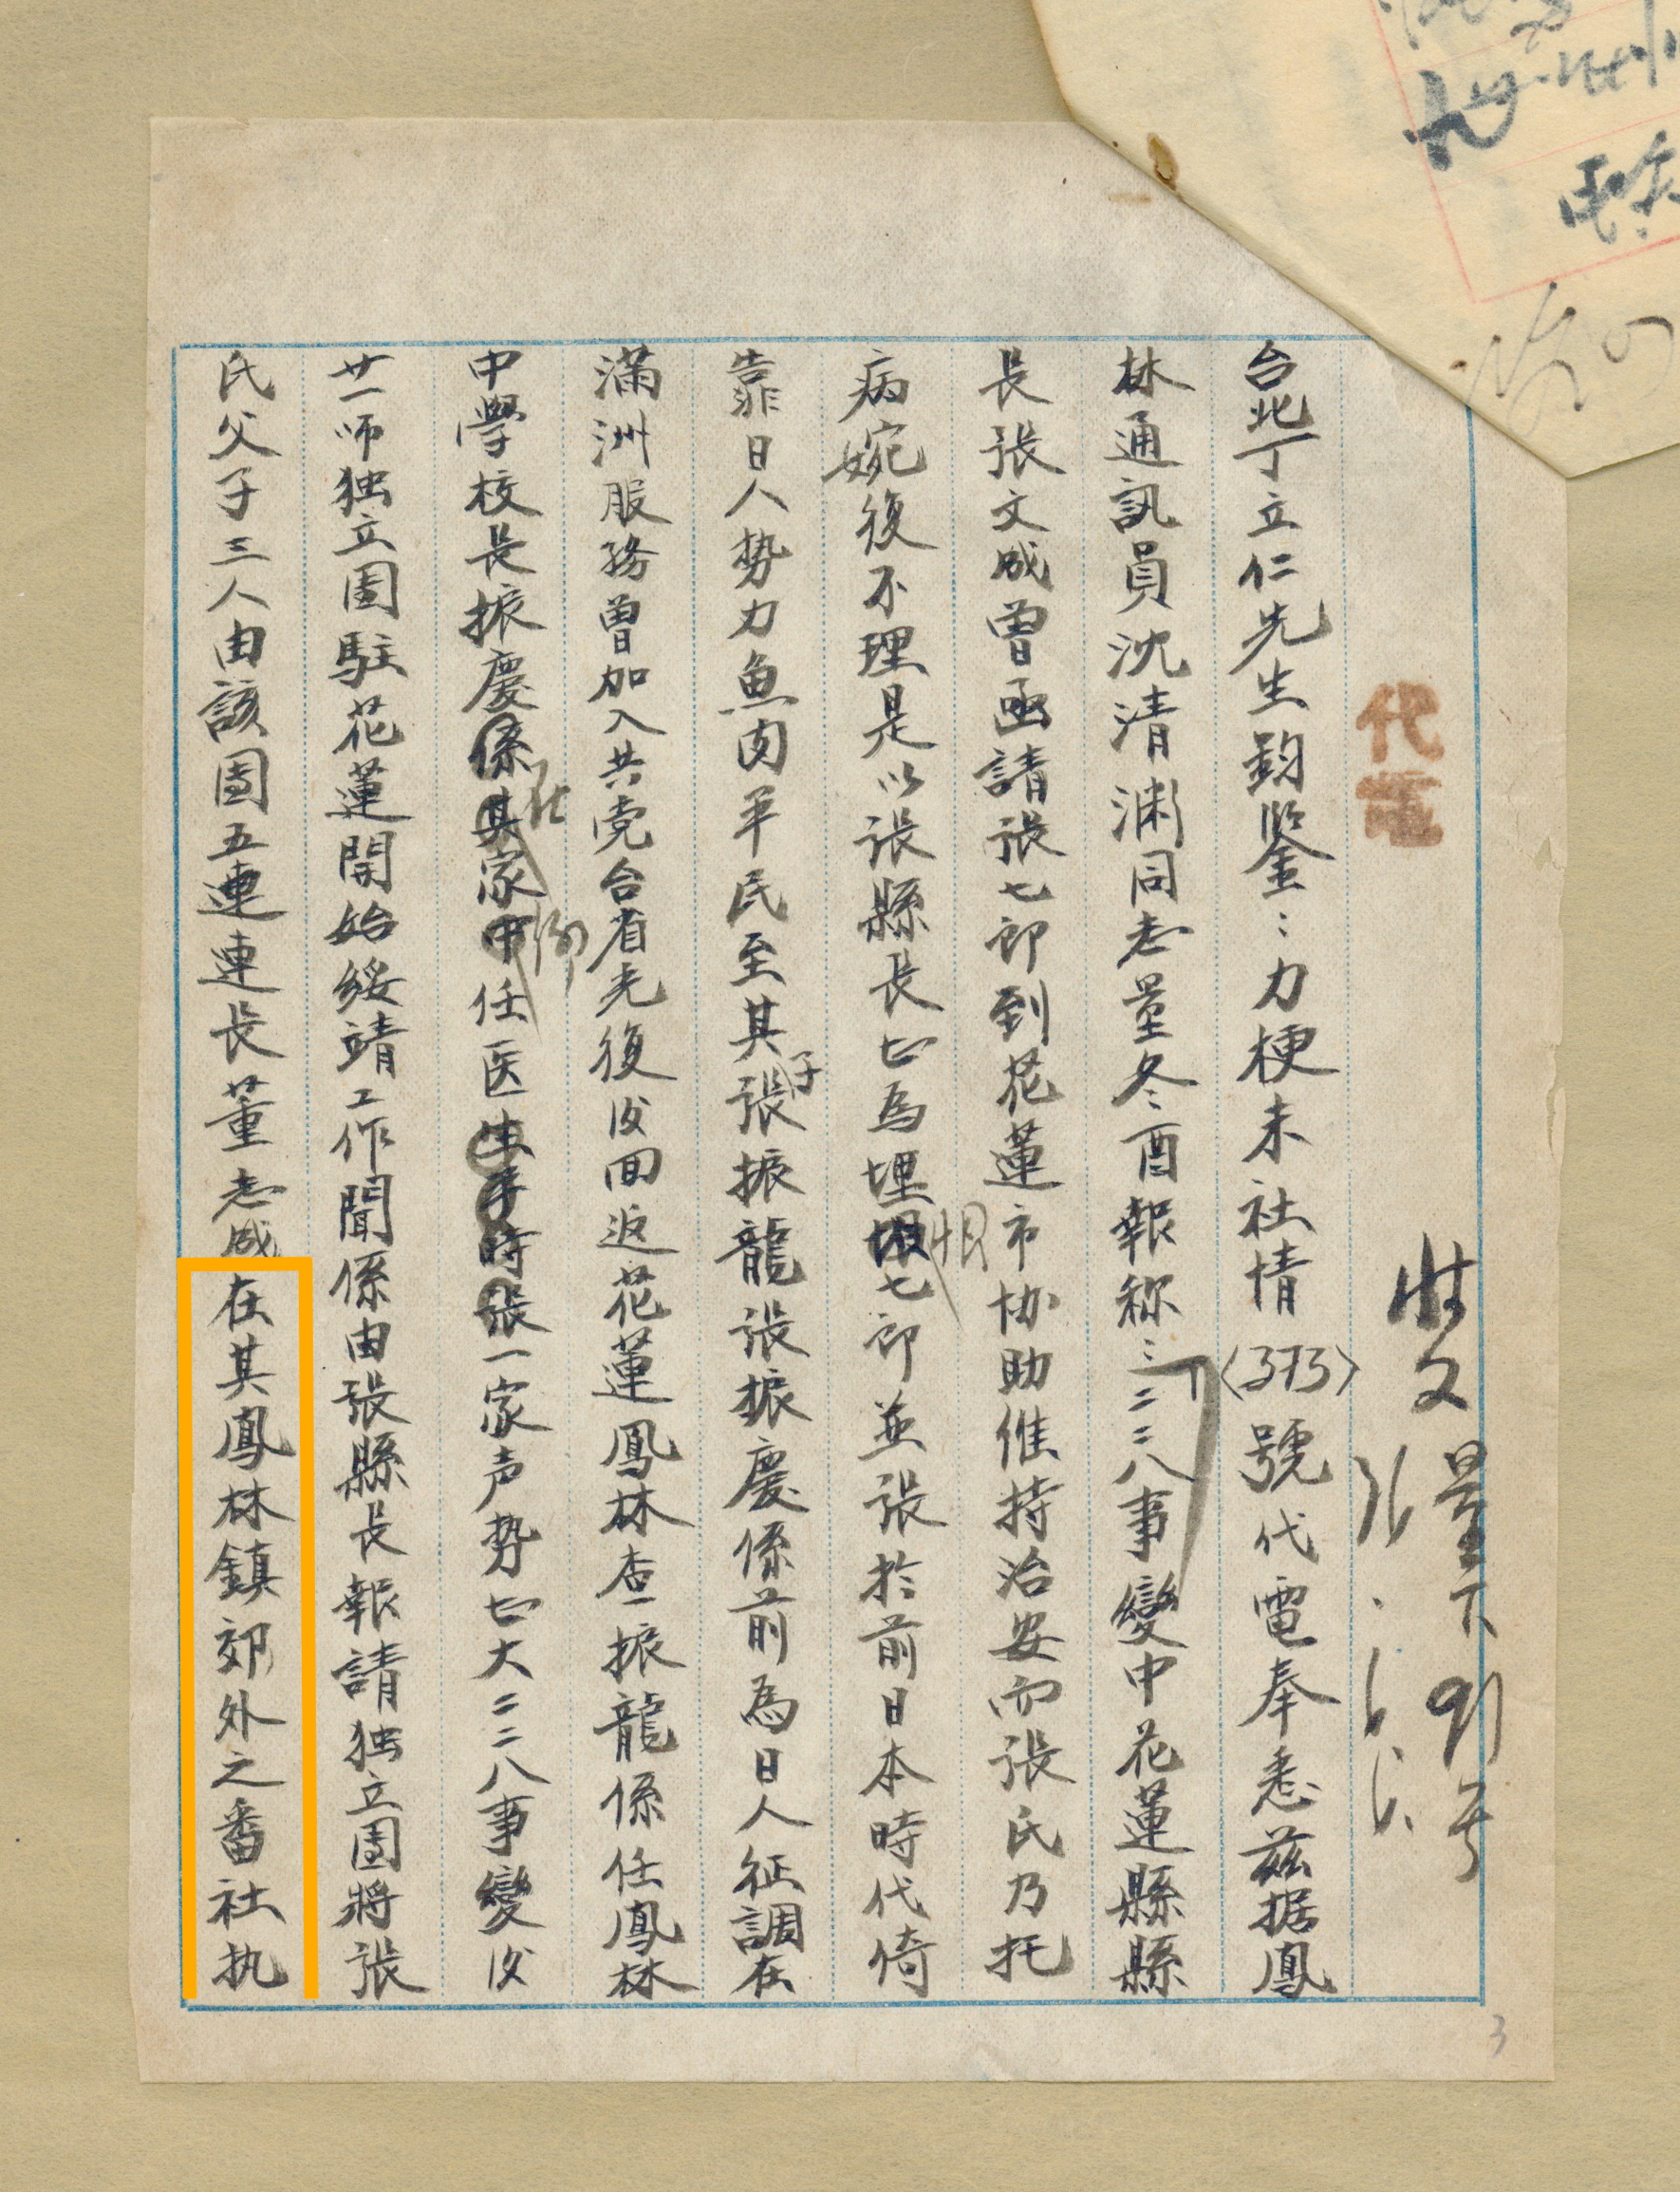 代電
台北丁立仁先生鈞鑒:力梗未社情〈393〉號代電奉悉茲据鳳
林通訊員沈清淵同志量冬酉報称:「二二八事變中花蓮縣縣
長張文成曾函請張七郎到花蓮市协助維持治安而張氏乃托
病婉復不理是以張縣長七郎並張於前日本時代倚
靠日人势力魚肉平民至其子張振龍張振慶係前為日人征調在
滿洲服務曾加入共党台省光復后回返花蓮鳳林查振龍係任鳳林
中學校長振慶係其家中任医生手時張一家声势大二二八事變后
廿一師独立團駐花蓮開始綏靖工作聞係由張縣長報請独立團將張
氏父子三人由該團五連連長董志成在其鳳林鎮郊外之番社执
3